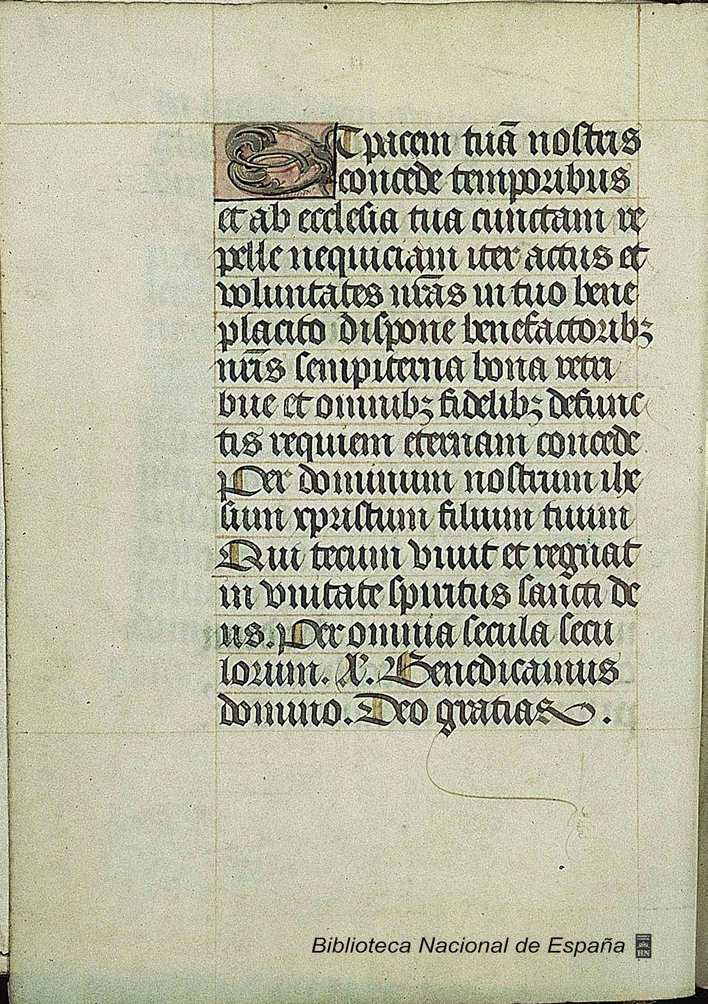 ET pacem tuā nostris
concede temporibus
et ab ecclesia tua cunctam re
pelle nequiciam iter actus et
voluntates nr̄as in tuo bene
placito dispone benefactoribꝫ
nr̄is sempiterna bona retri
bue et omnibꝫ fidelibꝫ defunc
tis requiem eternam concede
Per dominum nostrum ihe
sum xpristum filium tuum
Qui tecum vivit et regnat
in vnitate spiritus sancti de
us. Per omnia secula secu
lorum. ℣. Benedicamus
domino. Deo gratias.
Biblioteca Nacional de España
BN